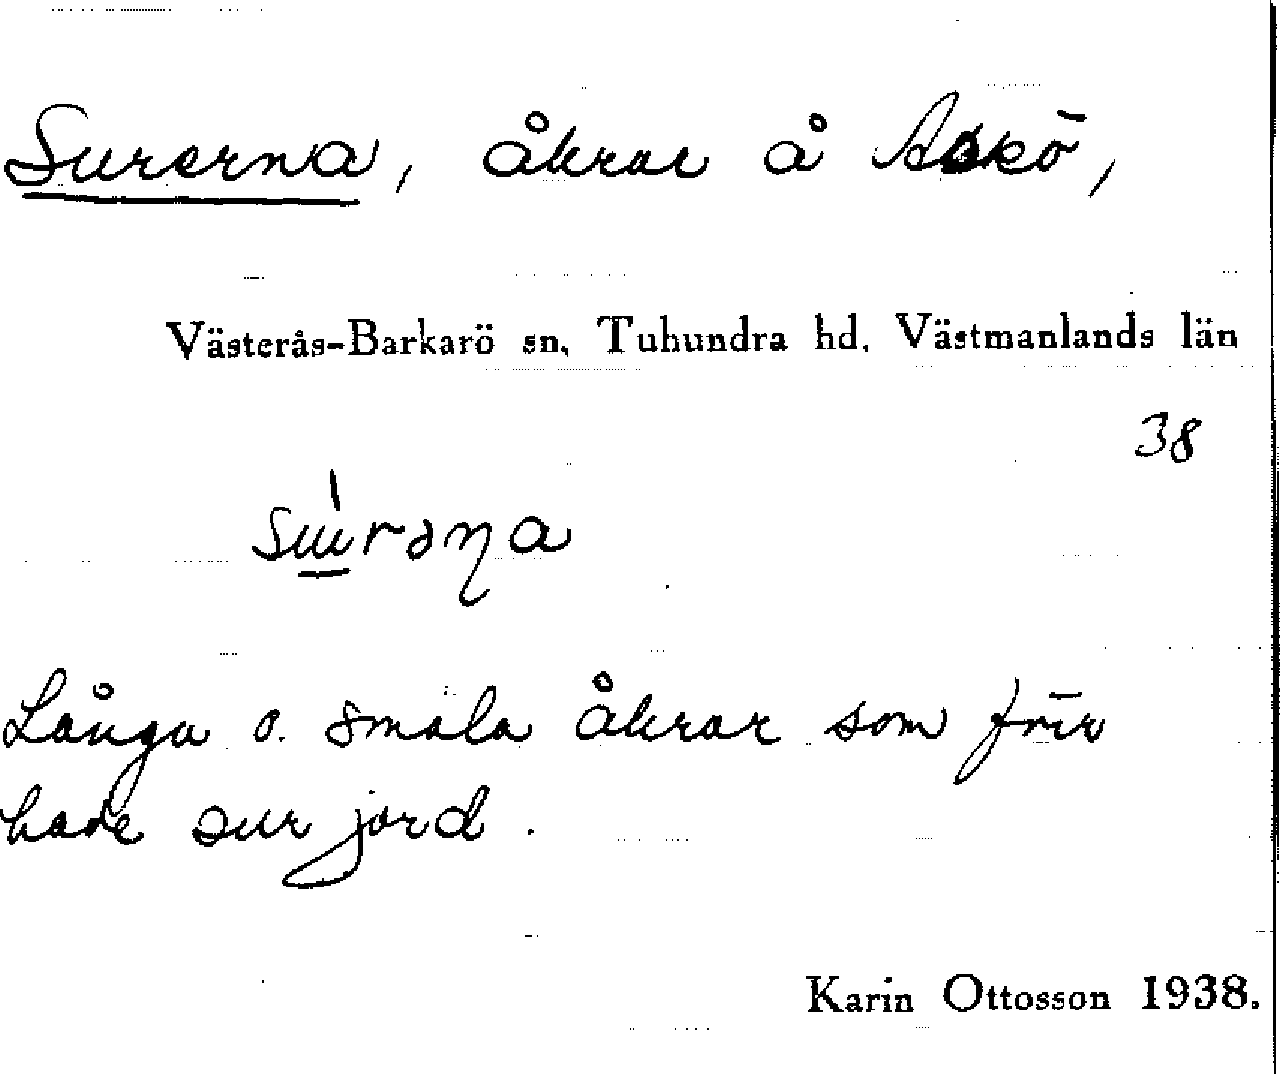 Surerna, åkrar å Askö,
Västerås-Barkarö sn, Tuhundra hd. Västmanlands län
38
Långa o. smala åkrar som förr
hade sur jord.
Karin Ottosson 1938.